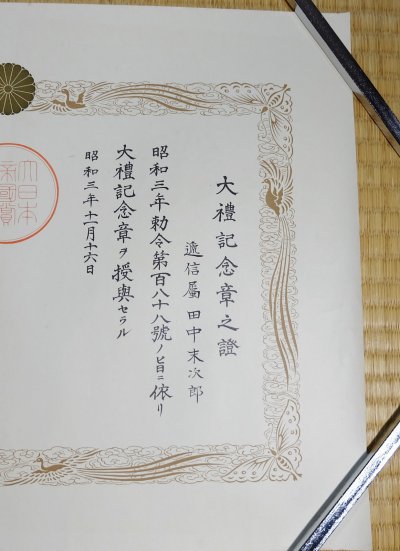 大禮記念章之證
遞信屬 田中末次郎
昭和三年勅令第百八十八號ノ旨ニ依リ
大禮記念章ヲ授與セラル
昭和三年十一月十六日
大日本
帝國賞